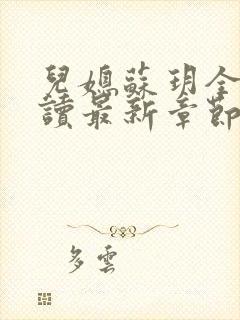 兒媳蘇玥全
讀最新章節
多雲